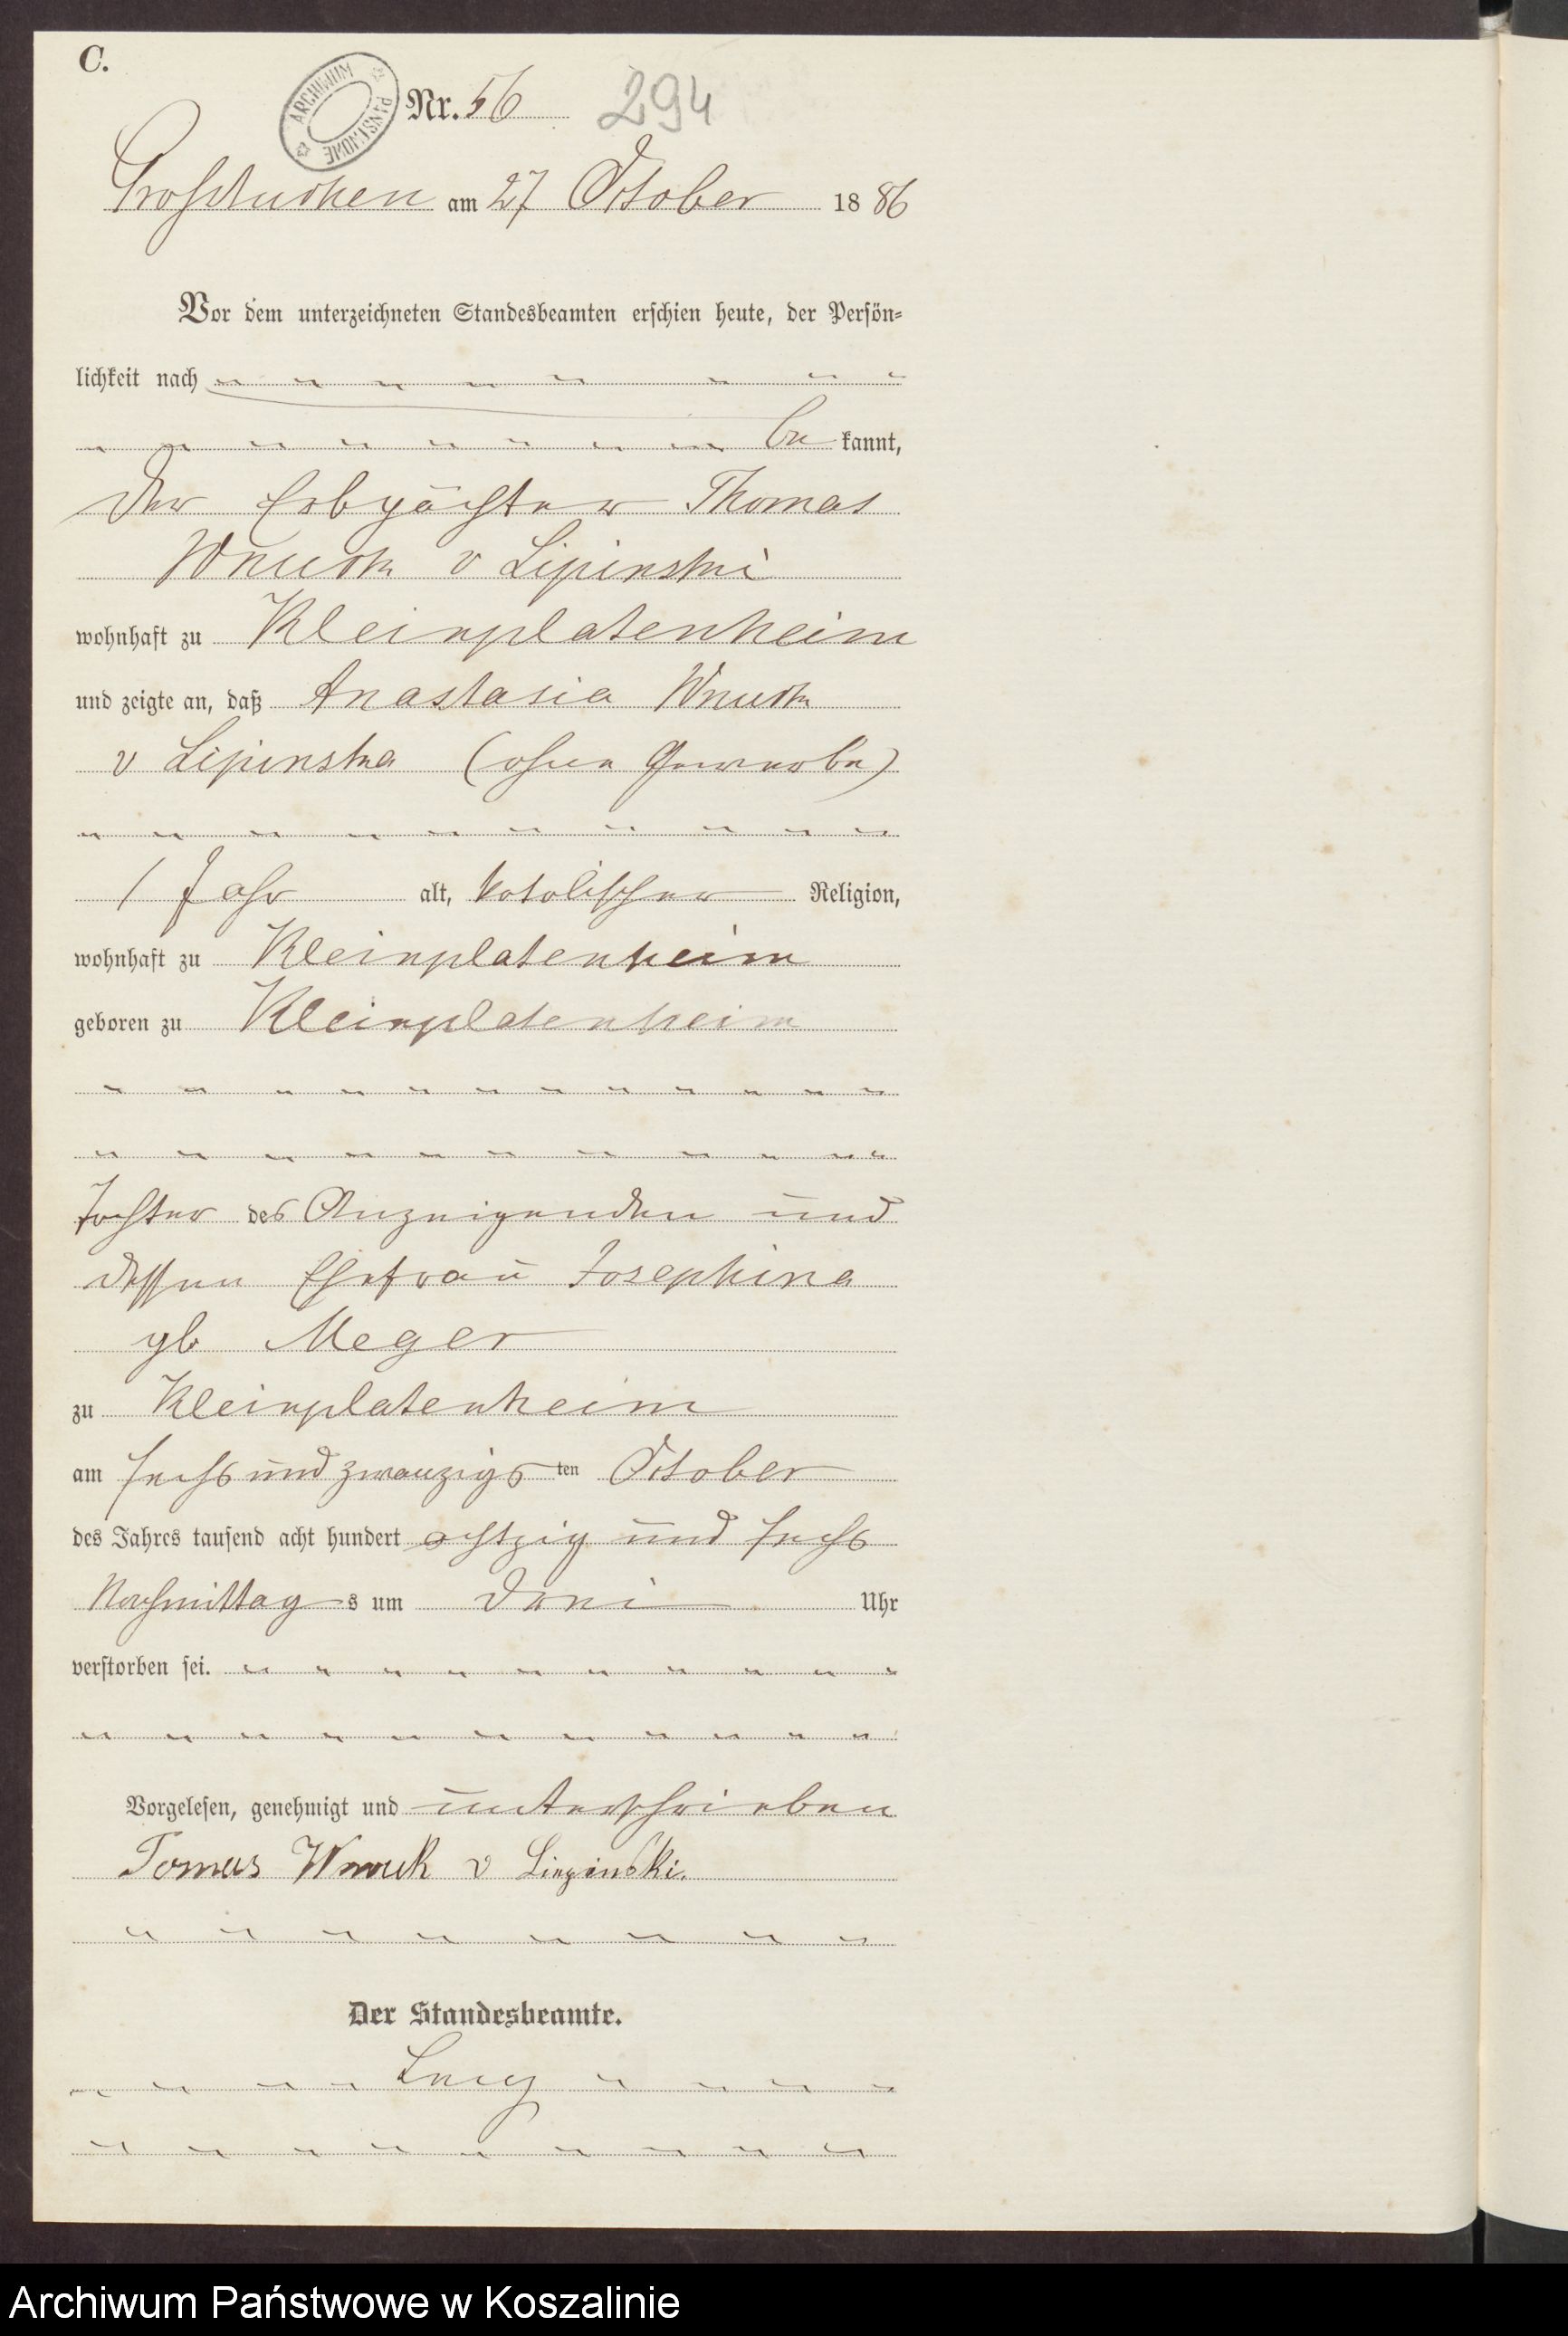 C.
ARCHIWUM PAŃSTWOWE
Nr. 56 294
Großtuchen am 27 October 1886
Vor dem unterzeichneten Standesbeamten erschien heute, der Persön=
lichkeit nach
be kannt,
der Erbpächter Thomas
Wnuck v Lipinski
wohnhaft zu Kleinplatenheim
und zeigte an, daß Anastasia Wnuck
v Lipinska (ohne Gewerbe)
1 Jahr alt, katolischer Religion,
wohnhaft zu Kleinplatenheim
geboren zu Kleinplatenheim
Tochter des Anzeigenden und
dessen Ehefrau Josephina
gb Meger
zu Kleinplatenheim
am sechs und zwanzigs ten October
des Jahres tausend acht hundert achtzig und sechs
Nachmittag s um drei Uhr
verstorben sei.
Vorgelesen, genehmigt und unterschrieben
Tomas Wnuck v Liepinski.
Der Standesbeamte.
Archiwum Państwowe w Koszalinie